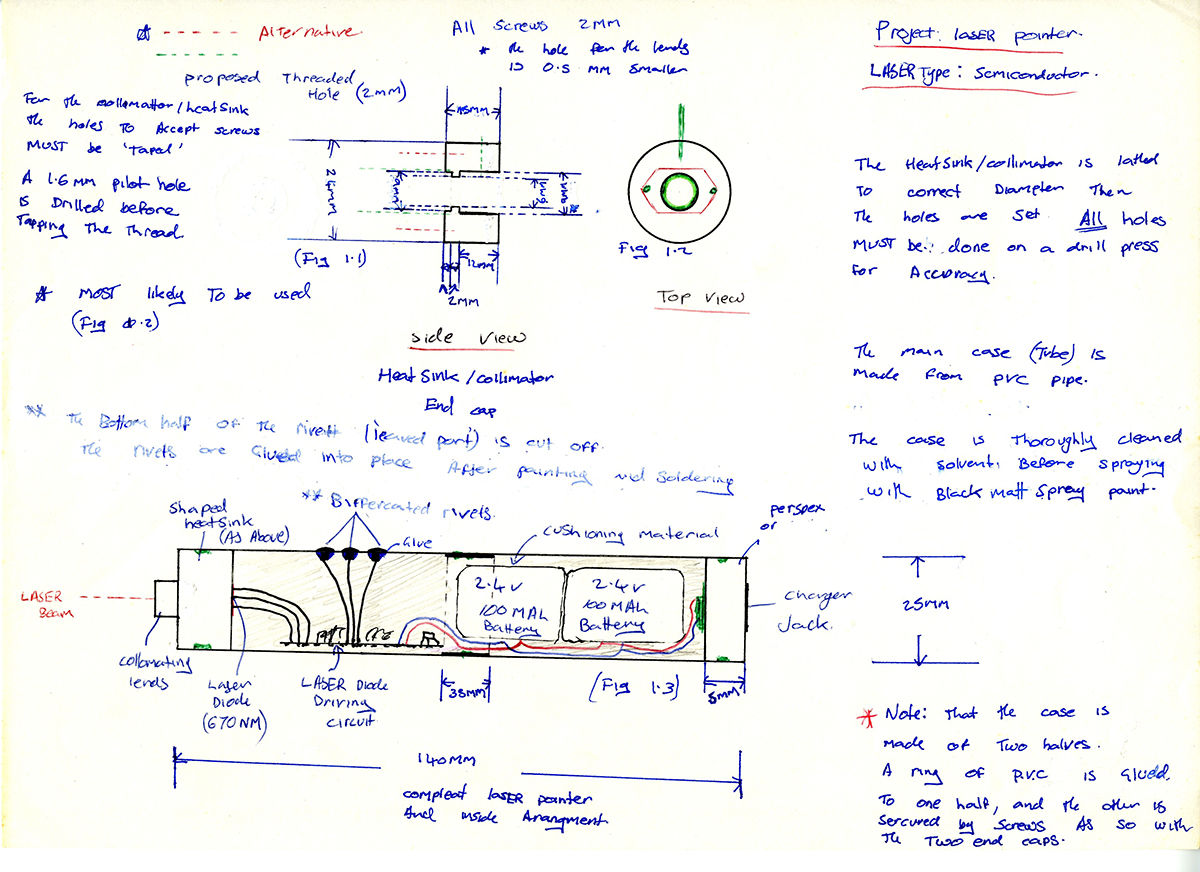 Alternative.
proposed Threaded
Hole (2MM)
All Screws 2MM
* the hole for the lends
is 0.5 MM smaller
Project: LASER pointer.
LASER Type: Semiconductor.
For the collomattor/heatsink
the holes To Accept screws
MUST be 'Taped'
A 1.6MM pilot hole
is Drilled before
Tapping The Thread
MOST likely To be used
24MM
(Fig 1.1)
12MM
2MM
Side View
HeatSink/collimator
End cap
Fig 1.2
Top View
The HeatSink/collimator is lathed
To correct Diampter Then
the holes are set. All holes
MUST be: done on a drill press
for Accuracy.
The main case (Tube) is
made from PVC pipe.
The case is Thoroughly cleaned
with solvent. Before spraying
with Black Matt Spray paint.
** The Bottom half of the rivett (leaved part) is cut off.
The rivets are Glued into place After painting and Soldering
** Biffercated rivets.
Shaped
heatsink
(As Above)
Glue
cushioning material
perspex
or
LASER
Beam
2.4v
100 MAh
Battery
2.4v
100 MAh
Battery
Charger
Jack.
25MM
collomating
lends
Laser
Diode
(670NM)
LASER Diode
Driving
circuit
35MM
(Fig 1.3)
5MM
140MM
compleat laser pointer
And inside Arangment
* Note: that the case is
made of Two halves.
A ring of P.V.C is Glued.
To one half, and the other is
sercured by screws As so with
the Two end caps.